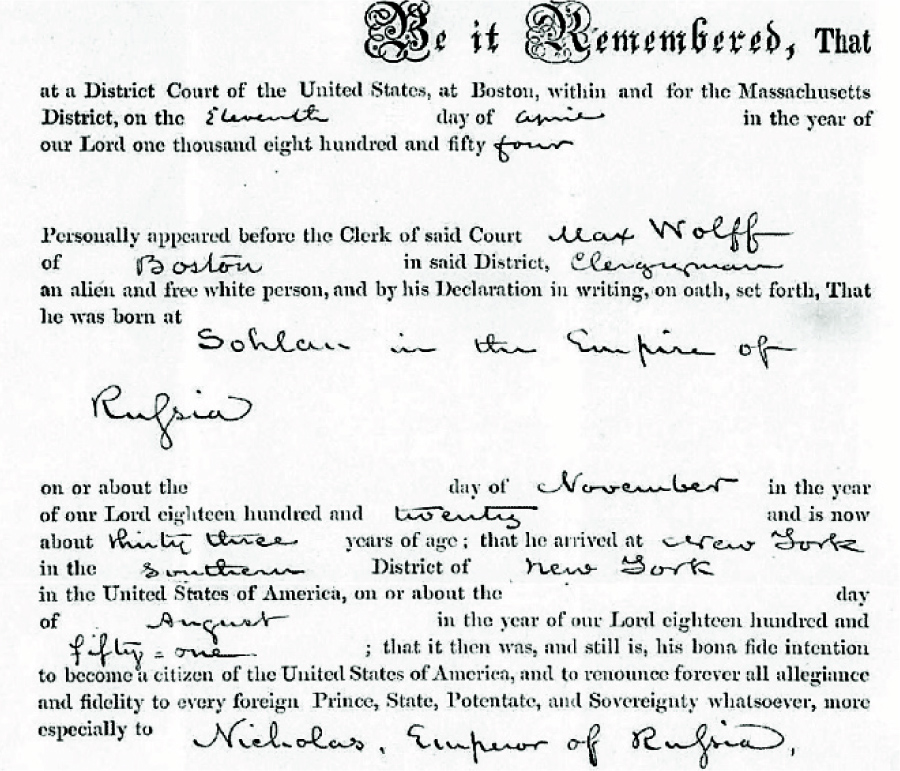 Be it Remembered, That
at a District Court of the United States, at Boston, within and for the Massachusetts
District, on the Eleventh day of April in the year of
our Lord one thousand eight hundred and fifty four
Personally appeared before the Clerk of said Court Max Wolff
of Boston in said District, Clergyman
an alien and free white person, and by his Declaration in writing, on oath, set forth, That
he was born at
Sohlau in the Empire of
Rufsia
on or about the day of November in the year
of our Lord eighteen hundred and twenty and is now
about thirty three years of age; that he arrived at New York
in the Southern District of New York
in the United States of America, on or about the day
of August in the year of our Lord eighteen hundred and
fifty=one ; that it then was, and still is, his bona fide intention
to become a citizen of the United States of America, and to renounce forever all allegiance
and fidelity to every foreign Prince, State, Potentate, and Sovereignty whatsoever, more
especially to Nicholas, Emperor of Rufsia,